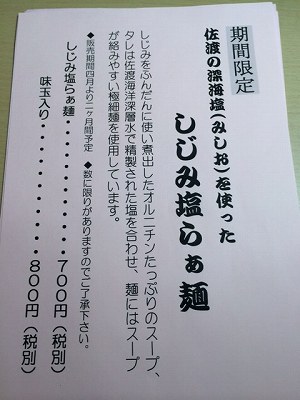 期間限定
佐渡の深海塩(みしお)を使った
しじみ塩らぁ麺
しじみをふんだんに使い煮出したオルニチンたっぷりのスープ、
タレは佐渡海洋深層水で精製された塩を合わせ、麺にはスープ
が絡みやすい極細麺を使用しています。
◆販売期間四月より二ヶ月間予定 ◆数に限りがありますのでご了承下さい。
しじみ塩らぁ麺・・・・・・・・・700円(税別)
味玉入り・・・・・・・・・800円(税別)